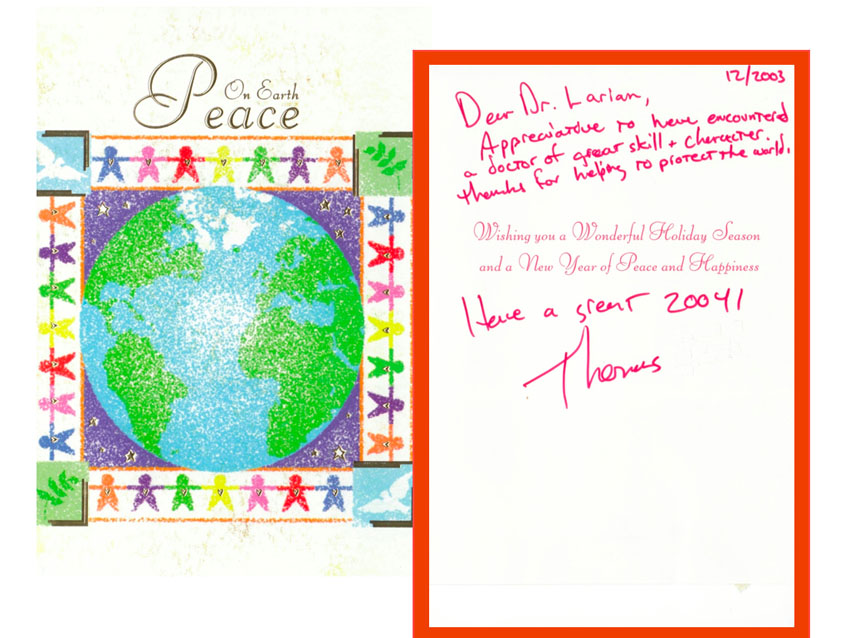 On Earth
Peace
12/2003
Dear Dr. Larian,
Appreciative to have encountered
a doctor of great skill + character.
Thanks for helping to protect the world.
Wishing you a Wonderful Holiday Season
and a New Year of Peace and Happiness
Have a great 2004!
Thomas